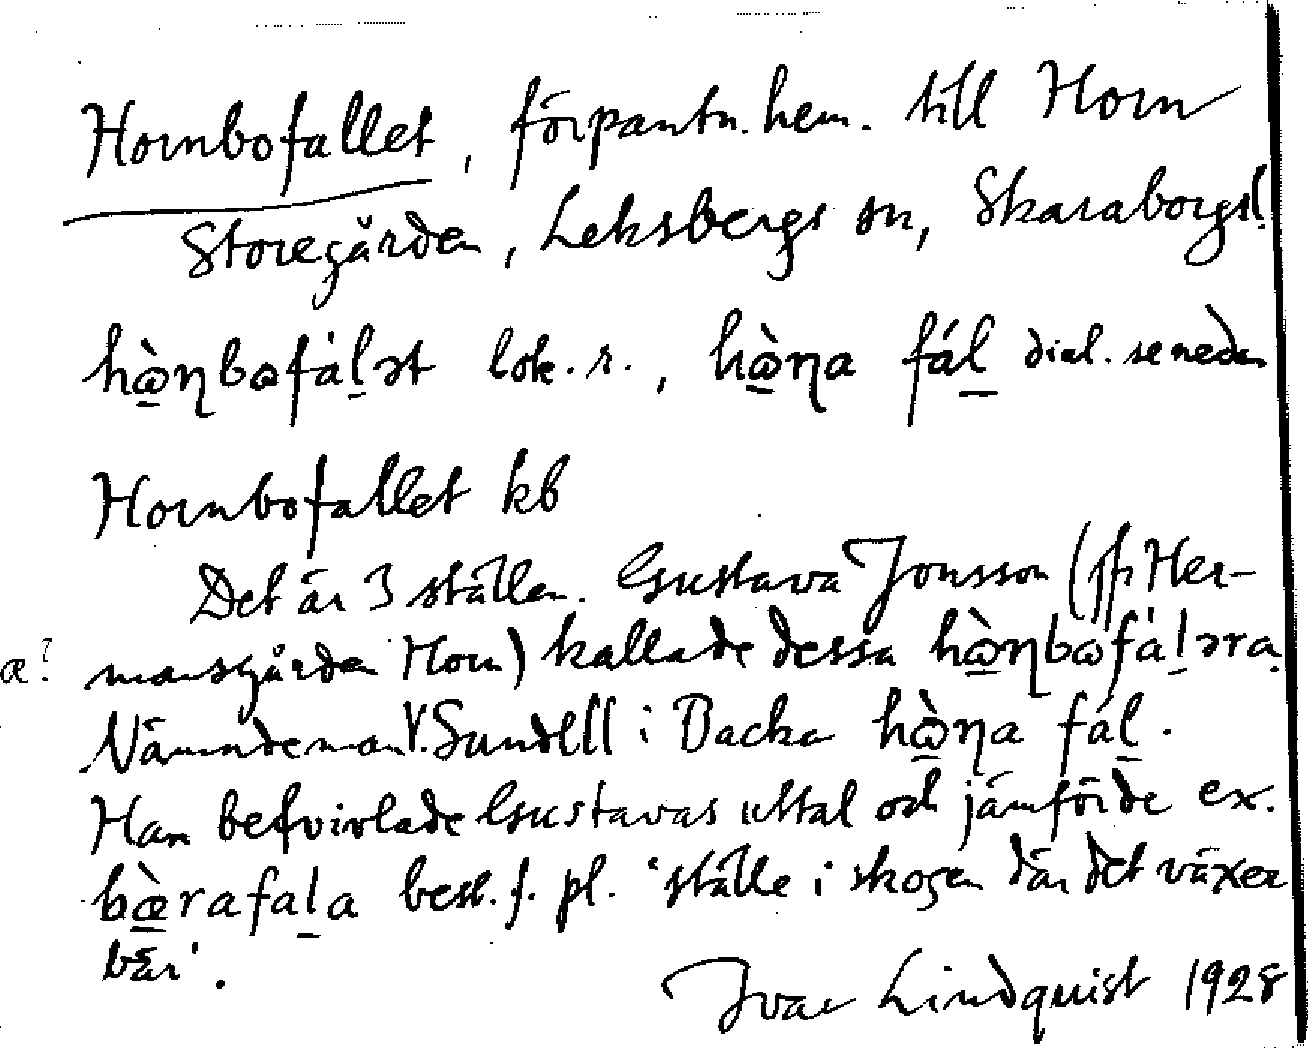 Hornbofallet, förpantn. hem. till Horn
Storegården, Leksbergs sn, Skaraborgs l.
hɷ̀ɳbɷfàl̠ət lok. r., hɷ̀ɳa fál̠ dial. se nedan
Hornbofallet kb
Det är 3 ställen. Gustava Jonsson (ffr Her-
a? mansgården Horn) kallade dessa hɷ̀ɳbɷfàl̠əra
Nämndeman V. Sundell i Backa hɷ̀ɳa fál̠.
Han betvivlade Gustavas uttal och jämförde ex.
bæ̀rafal̠a best. f. pl. 'ställe i skogen där det växer
bär'.
Ivar Lindquist 1928